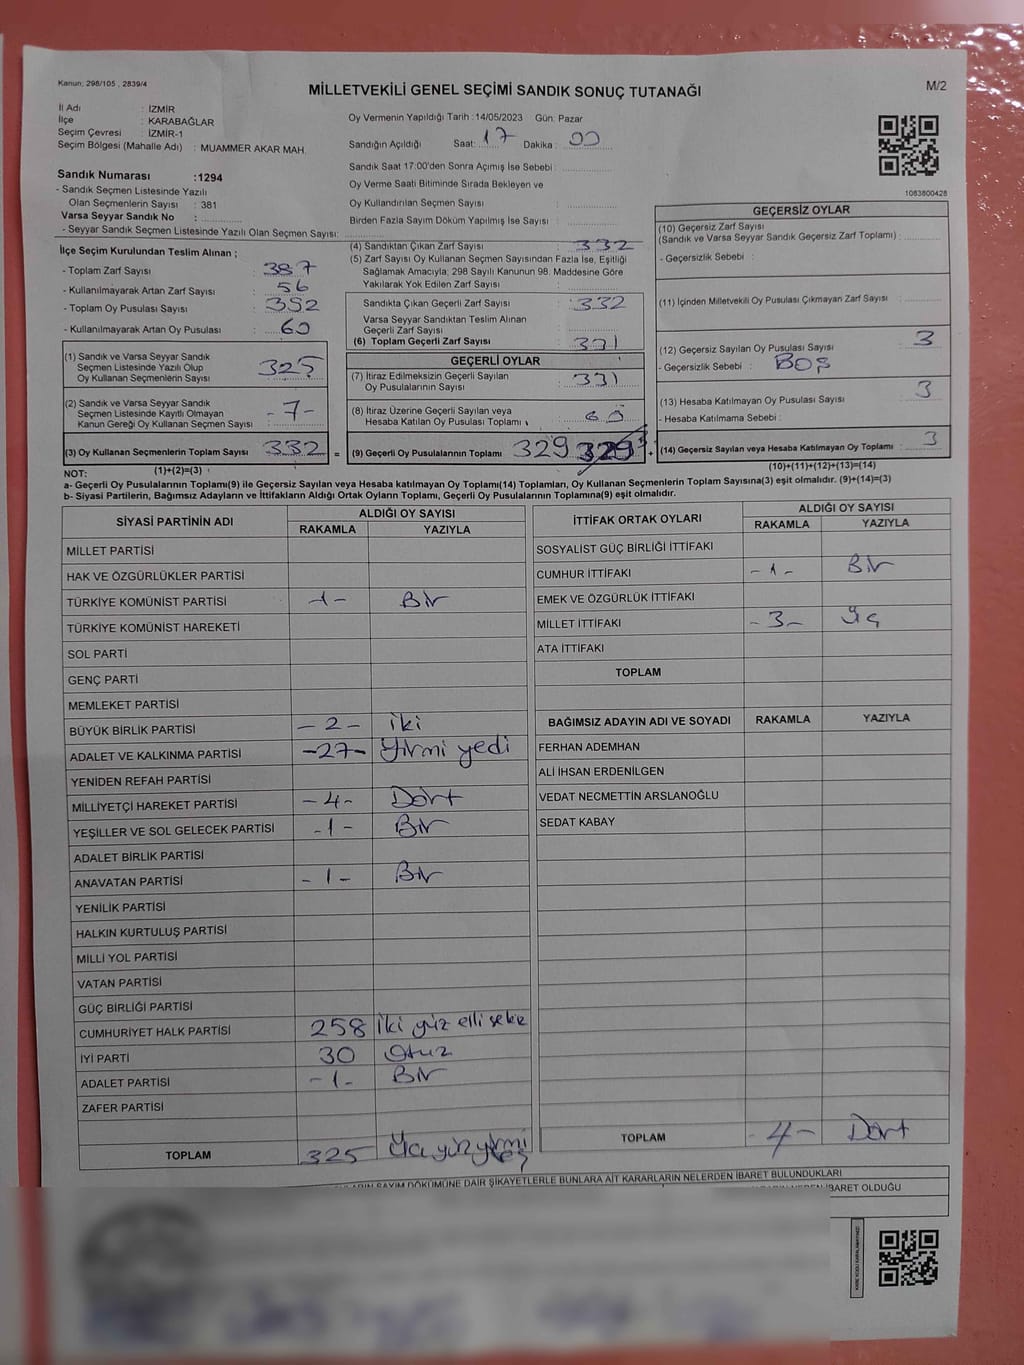 Kanun: 298/105 , 2839/4
MİLLETVEKİLİ GENEL SEÇİMİ SANDIK SONUÇ TUTANAĞI
M/2
İl Adı : İZMİR
İlçe : KARABAĞLAR
Seçim Çevresi : İZMİR-1
Seçim Bölgesi (Mahalle Adı) : MUAMMER AKAR MAH.
Sandık Numarası :1294
- Sandık Seçmen Listesinde Yazılı
Olan Seçmenlerin Sayısı : 381
Varsa Seyyar Sandık No :
- Seyyar Sandık Seçmen Listesinde Yazılı Olan Seçmen Sayısı:
Oy Vermenin Yapıldığı Tarih : 14/05/2023 Gün: Pazar
Sandığın Açıldığı Saat: 17 Dakika : 00
Sandık Saat 17:00'den Sonra Açımış İse Sebebi :
Oy Verme Saati Bitiminde Sırada Bekleyen ve
Oy Kullandırılan Seçmen Sayısı :
Birden Fazla Sayım Döküm Yapılmış İse Sayısı :
1083800428
İlçe Seçim Kurulundan Teslim Alınan ;
- Toplam Zarf Sayısı : 387
- Kullanılmayarak Artan Zarf Sayısı : 56
- Toplam Oy Pusulası Sayısı : 392
- Kullanılmayarak Artan Oy Pusulası : 60
(1) Sandık ve Varsa Seyyar Sandık
Seçmen Listesinde Yazılı Olup
Oy Kullanan Seçmenlerin Sayısı : 325
(2) Sandık ve Varsa Seyyar Sandık
Seçmen Listesinde Kayıtlı Olmayan
Kanun Gereği Oy Kullanan Seçmen Sayısı : -7-
(3) Oy Kullanan Seçmenlerin Toplam Sayısı : 332 =
(4) Sandıktan Çıkan Zarf Sayısı : 332
(5) Zarf Sayısı Oy Kullanan Seçmen Sayısından Fazla İse, Eşitliği
Sağlamak Amacıyla; 298 Sayılı Kanunun 98. Maddesine Göre
Yakılarak Yok Edilen Zarf Sayısı :
Sandıkta Çıkan Geçerli Zarf Sayısı : 332
Varsa Seyyar Sandıktan Teslim Alınan
Geçerli Zarf Sayısı :
(6) Toplam Geçerli Zarf Sayısı : 331
GEÇERLİ OYLAR
(7) İtiraz Edilmeksizin Geçerli Sayılan
Oy Pusulalarının Sayısı : 331
(8) İtiraz Üzerine Geçerli Sayılan veya
Hesaba Katılan Oy Pusulası Toplamı :
(9) Geçerli Oy Pusulalarının Toplamı 329 329 +
GEÇERSİZ OYLAR
(10) Geçersiz Zarf Sayısı
(Sandık ve Varsa Seyyar Sandık Geçersiz Zarf Toplamı) :
- Geçersizlik Sebebi :
(11) İçinden Milletvekili Oy Pusulası Çıkmayan Zarf Sayısı :
(12) Geçersiz Sayılan Oy Pusulası Sayısı : 3
- Geçersizlik Sebebi : BOŞ
(13) Hesaba Katılmayan Oy Pusulası Sayısı : 3
- Hesaba Katılmama Sebebi :
(14) Geçersiz Sayılan veya Hesaba Katılmayan Oy Toplamı : 3
NOT: (1)+(2)=(3)
(10)+(11)+(12)+(13)=(14)
a- Geçerli Oy Pusulalarının Toplamı(9) ile Geçersiz Sayılan veya Hesaba katılmayan Oy Toplamı(14) Toplamları, Oy Kullanan Seçmenlerin Toplam Sayısına(3) eşit olmalıdır. (9)+(14)=(3)
b- Siyasi Partilerin, Bağımsız Adayların ve İttifakların Aldığı Ortak Oyların Toplamı, Geçerli Oy Pusulalarının Toplamına(9) eşit olmalıdır.
SİYASİ PARTİNİN ADI ALDIĞI OY SAYISI
RAKAMLA YAZIYLA
MİLLET PARTİSİ
HAK VE ÖZGÜRLÜKLER PARTİSİ
TÜRKİYE KOMÜNİST PARTİSİ -1- Bir
TÜRKİYE KOMÜNİST HAREKETİ
SOL PARTİ
GENÇ PARTİ
MEMLEKET PARTİSİ
BÜYÜK BİRLİK PARTİSİ -2- iki
ADALET VE KALKINMA PARTİSİ -27- Yirmi yedi
YENİDEN REFAH PARTİSİ
MİLLİYETÇİ HAREKET PARTİSİ -4- Dört
YEŞİLLER VE SOL GELECEK PARTİSİ -1- Bir
ADALET BİRLİK PARTİSİ
ANAVATAN PARTİSİ -1- Bir
YENİLİK PARTİSİ
HALKIN KURTULUŞ PARTİSİ
MİLLİ YOL PARTİSİ
VATAN PARTİSİ
GÜÇ BİRLİĞİ PARTİSİ
CUMHURİYET HALK PARTİSİ 258 iki yüz elli sekiz
İYİ PARTİ 30 Otuz
ADALET PARTİSİ -1- Bir
ZAFER PARTİSİ
TOPLAM 325 Üçyüzyirmi beş
İTTİFAK ORTAK OYLARI ALDIĞI OY SAYISI
RAKAMLA YAZIYLA
SOSYALIST GÜÇ BİRLİĞİ İTTİFAKI
CUMHUR İTTİFAKI -1- Bir
EMEK VE ÖZGÜRLÜK İTTİFAKI
MİLLET İTTİFAKI -3- Üç
ATA İTTİFAKI
TOPLAM
BAĞIMSIZ ADAYIN ADI VE SOYADI RAKAMLA YAZIYLA
FERHAN ADEMHAN
ALİ İHSAN ERDENİLGEN
VEDAT NECMETTİN ARSLANOĞLU
SEDAT KABAY
TOPLAM -4- Dört
SAYIM DÖKÜMÜNE DAİR ŞİKAYETLERLE BUNLARA AİT KARARLARIN NELERDEN İBARET BULUNDUKLARI
İBARET OLDUĞU